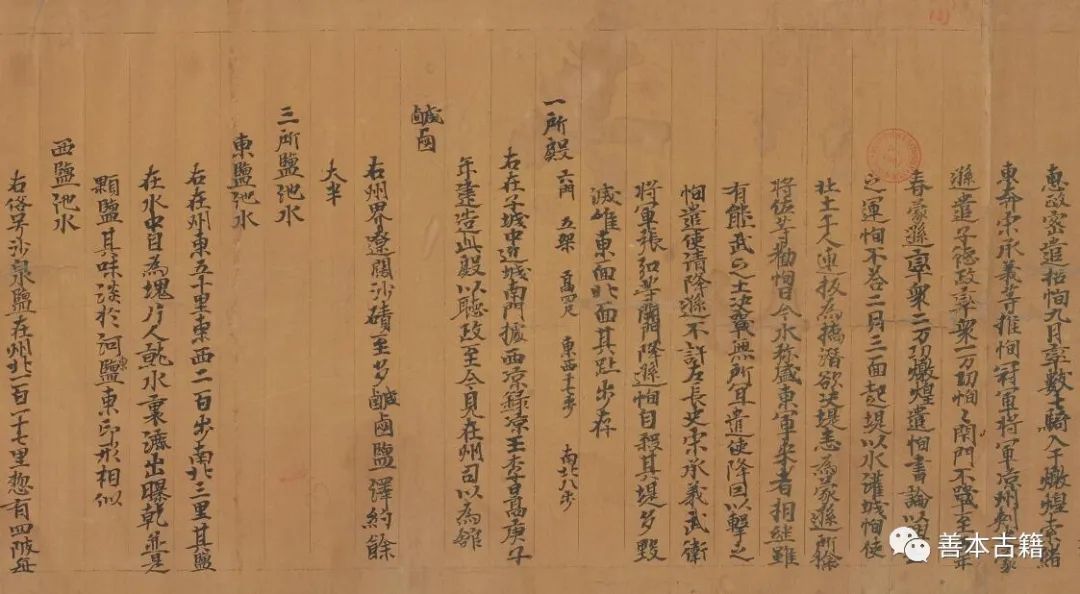 惠政密遣招恂九月率數十騎入于燉煌索緒
東奔宋承義等推恂冠軍將軍涼州刺史蒙
遜遣子德政率衆一万功恂々閇門不戰至五年
春蒙遜率衆二万功燉煌遣恂書諭以
之運恂不荅二月三面起堤以水灌城恂使
壯士千人連板為橋潛欲決堤悉為蒙遜所擒
將佐等勸恂曰今水弥盛東軍來者相継雖
有熊武之士決戰無所宜遣使降因以擊之
恂遣使請降遜不許左長史宋承義武衛
將軍張弘等開門降遜恂自殺其堤多毀
滅唯東面北面其趾步存
一所殿 六門 五架 高四尺 東西十七步 南北八步
右在子城中近城南門據西涼錄涼王李暠庚子
年建造此殿以聽政至今見在州司以為館
鹹鹵
右州界遼闊沙磧至多鹹鹵鹽澤約餘
大半
三所鹽池水
東鹽池水
右在州東五十里東西二百步南北三里其鹽
在水中自為塊片人就水裏漉出曝乾並是
顆鹽其味淡於河鹽東印形相似
西鹽池水
右俗号沙泉鹽在州北一百一十七里惣有四陂每
善本古籍